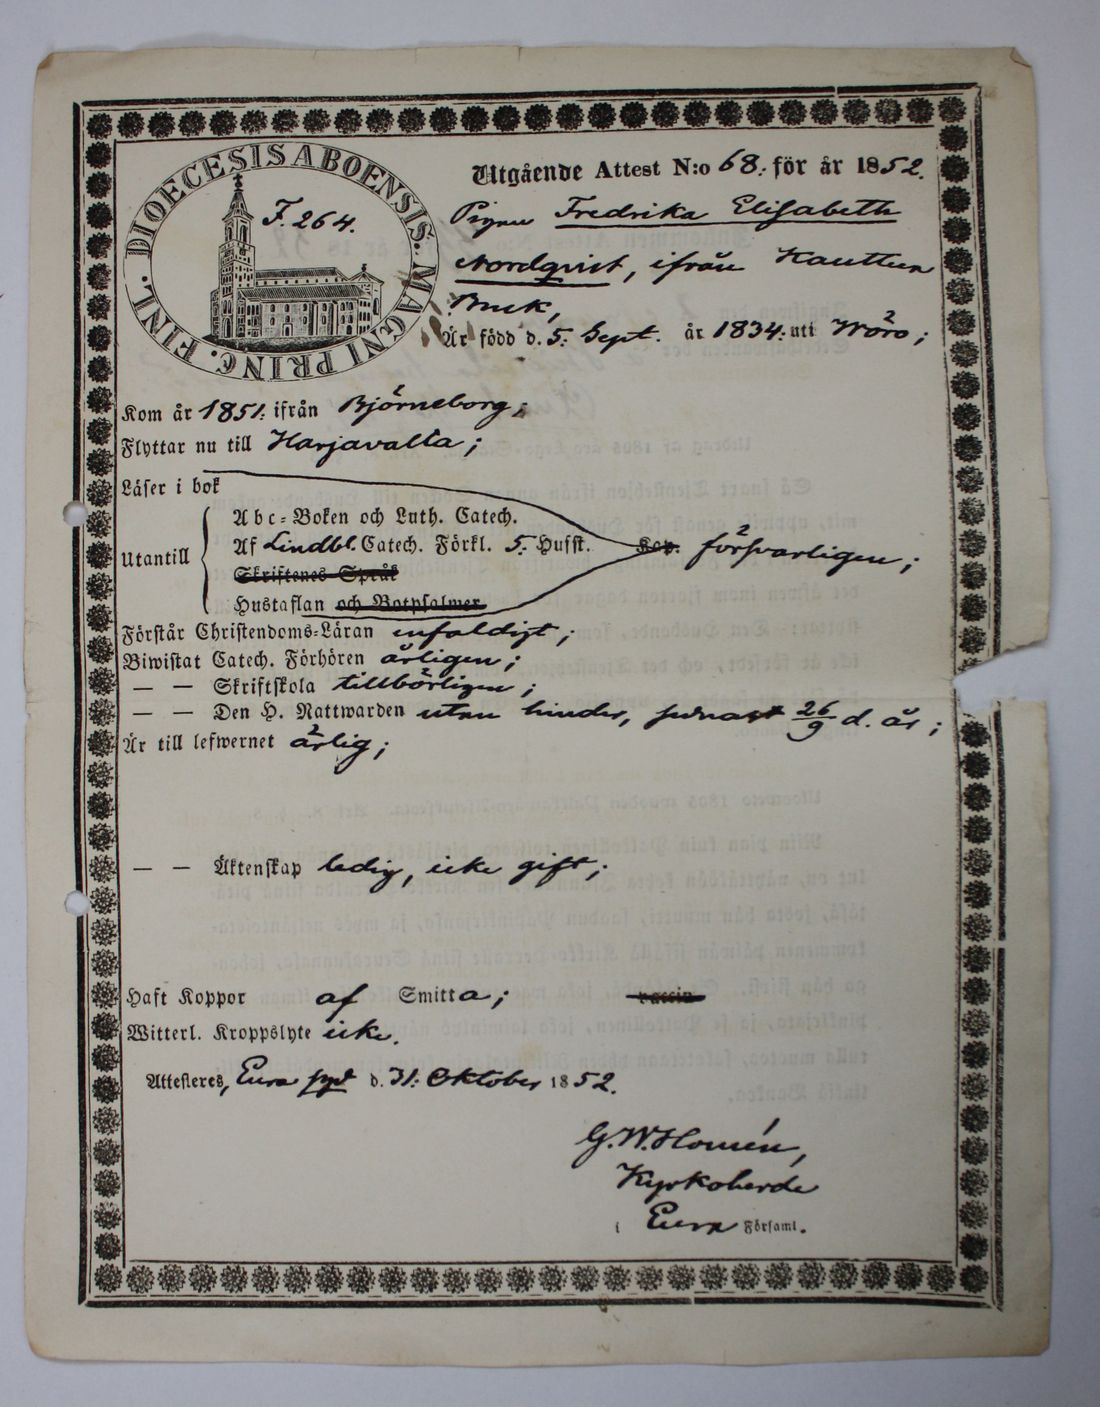 DIOECESIS ABOENSIS. MAGNI PRINC. FINL.
F. 264.
Utgående Attest N:o 68. för år 1852.
Pigan Fredrika Elisabeth
Nordqvist, ifrån Kauttua
Bruk,
Är född d. 5. Sept. år 1834. uti Wörå;
Kom år 1851. ifrån Björneborg;
Flyttar nu till Harjavalta;
Läser i bok
Abc-Boken och Luth. Catech.
Utantill Af Lindbl. Catech. Förkl. 5. Hufst. Kap. försvarligen;
Skriftenes Språk
Hustaflan och Botpsalmer
Förstår Christendoms-Läran enfaldigt;
Biwistat Catech. Förhören årligen;
— — Skriftskola tillbörligen;
— — Den H. Nattwarden utan hinder, senast 26/9 d. år;
Är till lefwernet ärlig;
— — Äktenskap ledig, icke gift;
Haft Koppor af Smitta; vaccin
Witterl. Kroppslyte icke.
Attesteres, Eura pgd d. 31. Oktober 1852.
G. W. Homén,
Kyrkoherde
i Eura Församl.